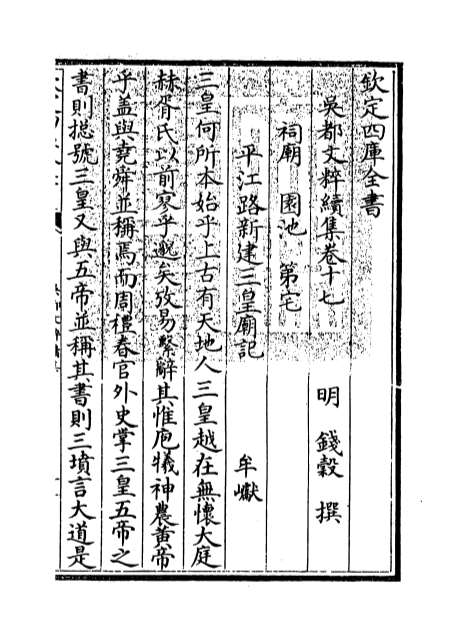 欽定四庫全書
吳都文粹續集卷十七
明 錢穀 撰
祠廟 園池 第宅
平江路新建三皇廟記
牟巘
三皇何所本始乎上古有天地人三皇越在無懷大庭
赫胥氏以前寥乎邈矣攷易繫辭其惟庖犧神農黃帝
乎盖與堯舜並稱焉而周禮春官外史掌三皇五帝之
書則揔號三皇又與五帝並稱其書則三墳言大道是